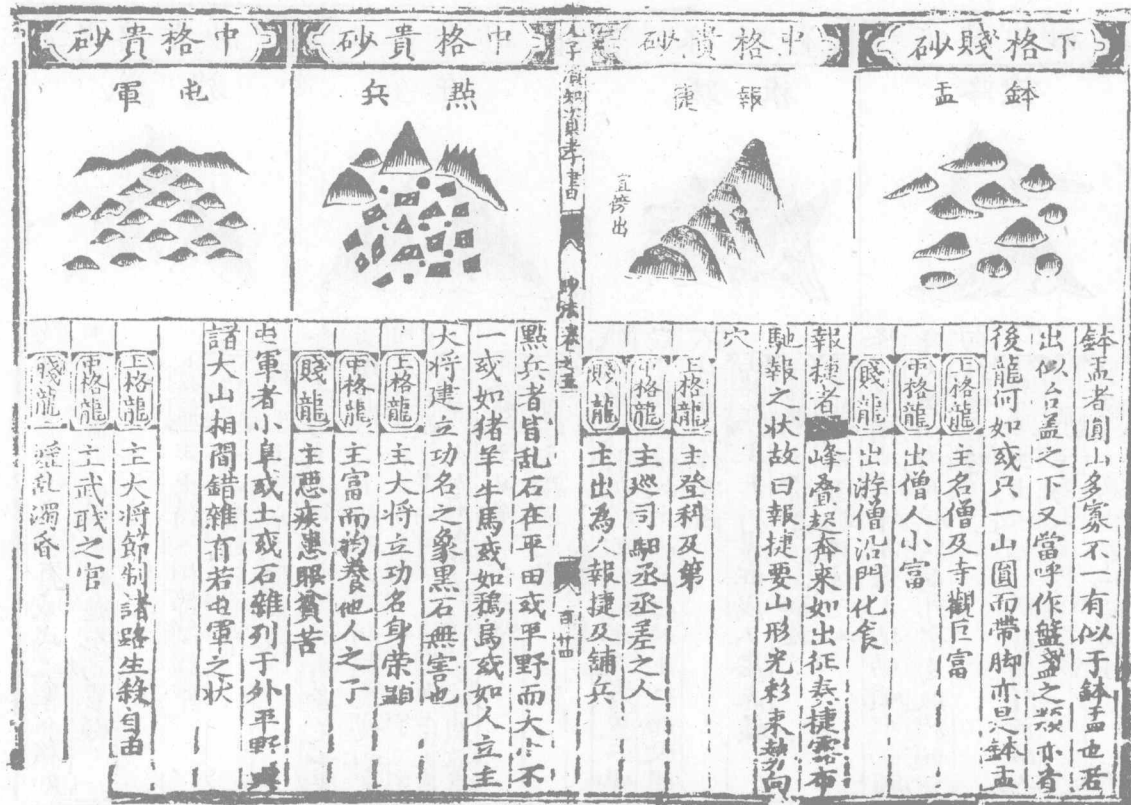 下格賤砂
鉢盂
鉢盂者圓山多寡不一有似于鉢盂也若
出似台盖之下又當呼作盞之類亦看
後龍何如或只一山圓而帶脚亦是鉢盂
上格龍 主名僧及寺觀巨富
中格龍 出僧人小富
賤龍 出游僧沿門化食
中格貴砂
報捷
宜傍出
報捷者峰叠起奔來如出征奏捷露布
馳報之状故曰報捷要山形光彩来勢向
穴
上格龍 主登科及第
中格龍 主巡司駔丞丞差之人
賤龍 主出為人報捷及舖兵
人子須知資孝書
砂法卷之五
百廿四
中格貴砂
點兵
點兵者皆乱石在平田或平野而大小不
一或如猪羊牛馬或如鵝鳥或如人立主
大将建立功名之象黑石無害也
上格龍 主大将立功名身榮顯
中格龍 主富而養他人之子
賤龍 主惡疾患眼貧苦
中格貴砂
屯軍
屯軍者小阜或土或石雜列于外平野與
諸大山相間錯雜有若屯軍之状
上格龍 主大将節制諸路生殺自由
中格龍 主武职之官
賤龍 乱濁